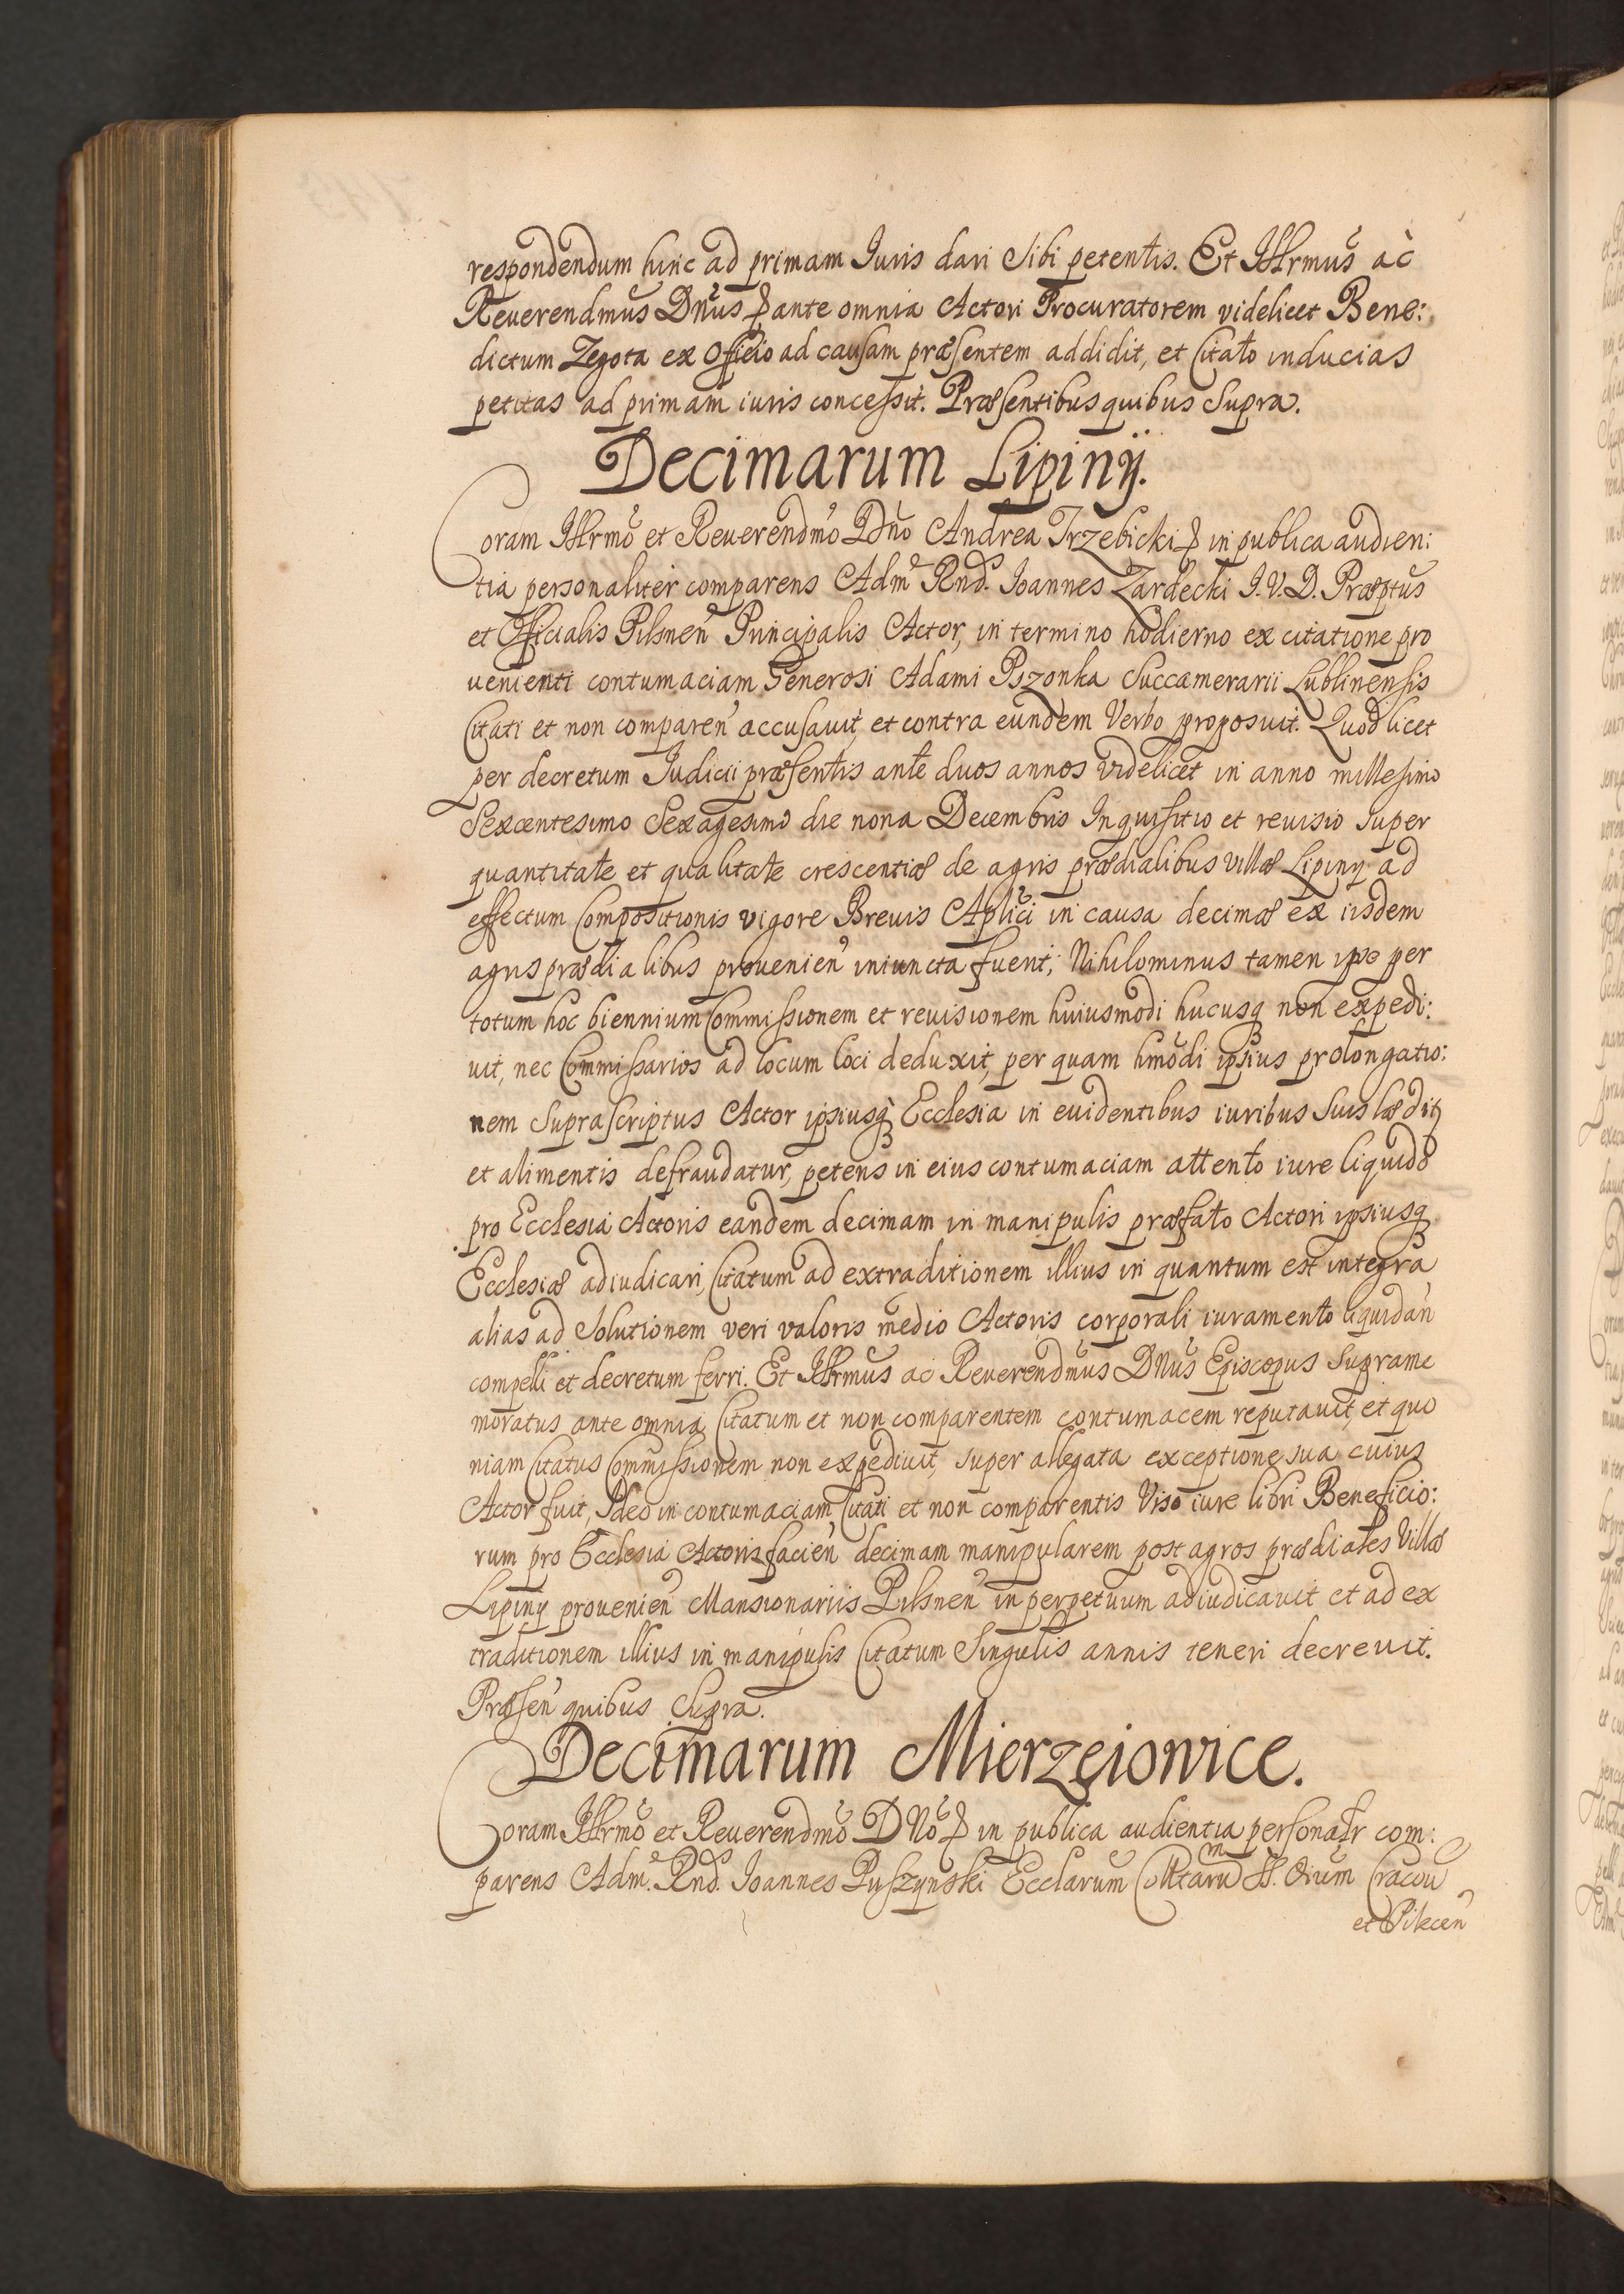 respondendum hinc ad primam Iuris dari sibi petentis. Et Illrmus ac
Reuerendmus Dnus ante omnia Actori Procuratorem videlicet Bene:
dictum Zegota ex Officio ad causam præsentem addidit, et Citato inducias
petitas ad primam iuris concessit. Præsentibus quibus supra.
Decimarum Lipiny.
Coram Illrmo et Reuerendmo Dno Andrea Trzebicki in publica audien:
tia personaliter comparens Adm Rnd. Ioannes Zardecki I.V.D. Præptus
et Officialis Pilsnen Principalis Actor, in termino hodierno ex citatione pro
uenienti contumaciam Generosi Adami Pszonka Succamerarii Lublinensis
Citati et non comparen accusauit, et contra eundem Verbo proposuit. Quod licet
per decretum Iudicii præsentis ante duos annos videlicet in anno millesimo
Sexcentesimo Sexagesimo die nona Decembris Inquisitio et reuisio super
quantitate et qualitate crescentiæ de agris prædialibus villæ Lipiny ad
effectum Compositionis vigore Breuis Aplici in causa decimæ ex iisdem
agris prædialibus prouenien iniuncta fuerit; Nihilominus tamen ipse per
totum hoc biennium Commissionem et reuisionem huiusmodi hucusq non expedi:
uit, nec Commissarios ad locum loci deduxit, per quam hmodi ipsius prolongatio:
nem suprascriptus Actor ipsiusq Ecclesia in euidentibus iuribus suis læditr
et alimentis defraudatur, petens in eius contumaciam attento iure liquido
pro Ecclesia Actoris eandem decimam in manipulis præfato Actori ipsiusq
Ecclesiæ adiudicari, Citatum ad extraditionem illius in quantum est integra
alias ad solutionem veri valoris medio Actoris corporali iuramento liquidan
compelli et decretum ferri. Et Illrmus ac Reuerendmus Dnus Episcopus suprame
moratus ante omnia Citatum et non comparentem contumacem reputauit, et quo
niam Citatus Commissionem non expediuit, super allegata exceptione sua cuius
Actor fuit, Ideo in contumaciam Citati et non comparentis Viso iure libri Beneficio:
rum pro Ecclesia Actoris facien decimam manipularem post agros prædiales Villæ
Lipiny prouenien Mansionariis Pilsnen in perpetuum adiudicauit et ad ex
traditionem illius in manipulis Citatum singulis annis teneri decreuit.
Præsen quibus supra.
Decimarum Mierzeiowice.
Coram Illrmo et Reuerendmo DNo in publica audientia personalr com:
parens Adm. Rnd. Ioannes Puszynski Ecclarum Collltarum SS. Oium Cracou
et Pilecen